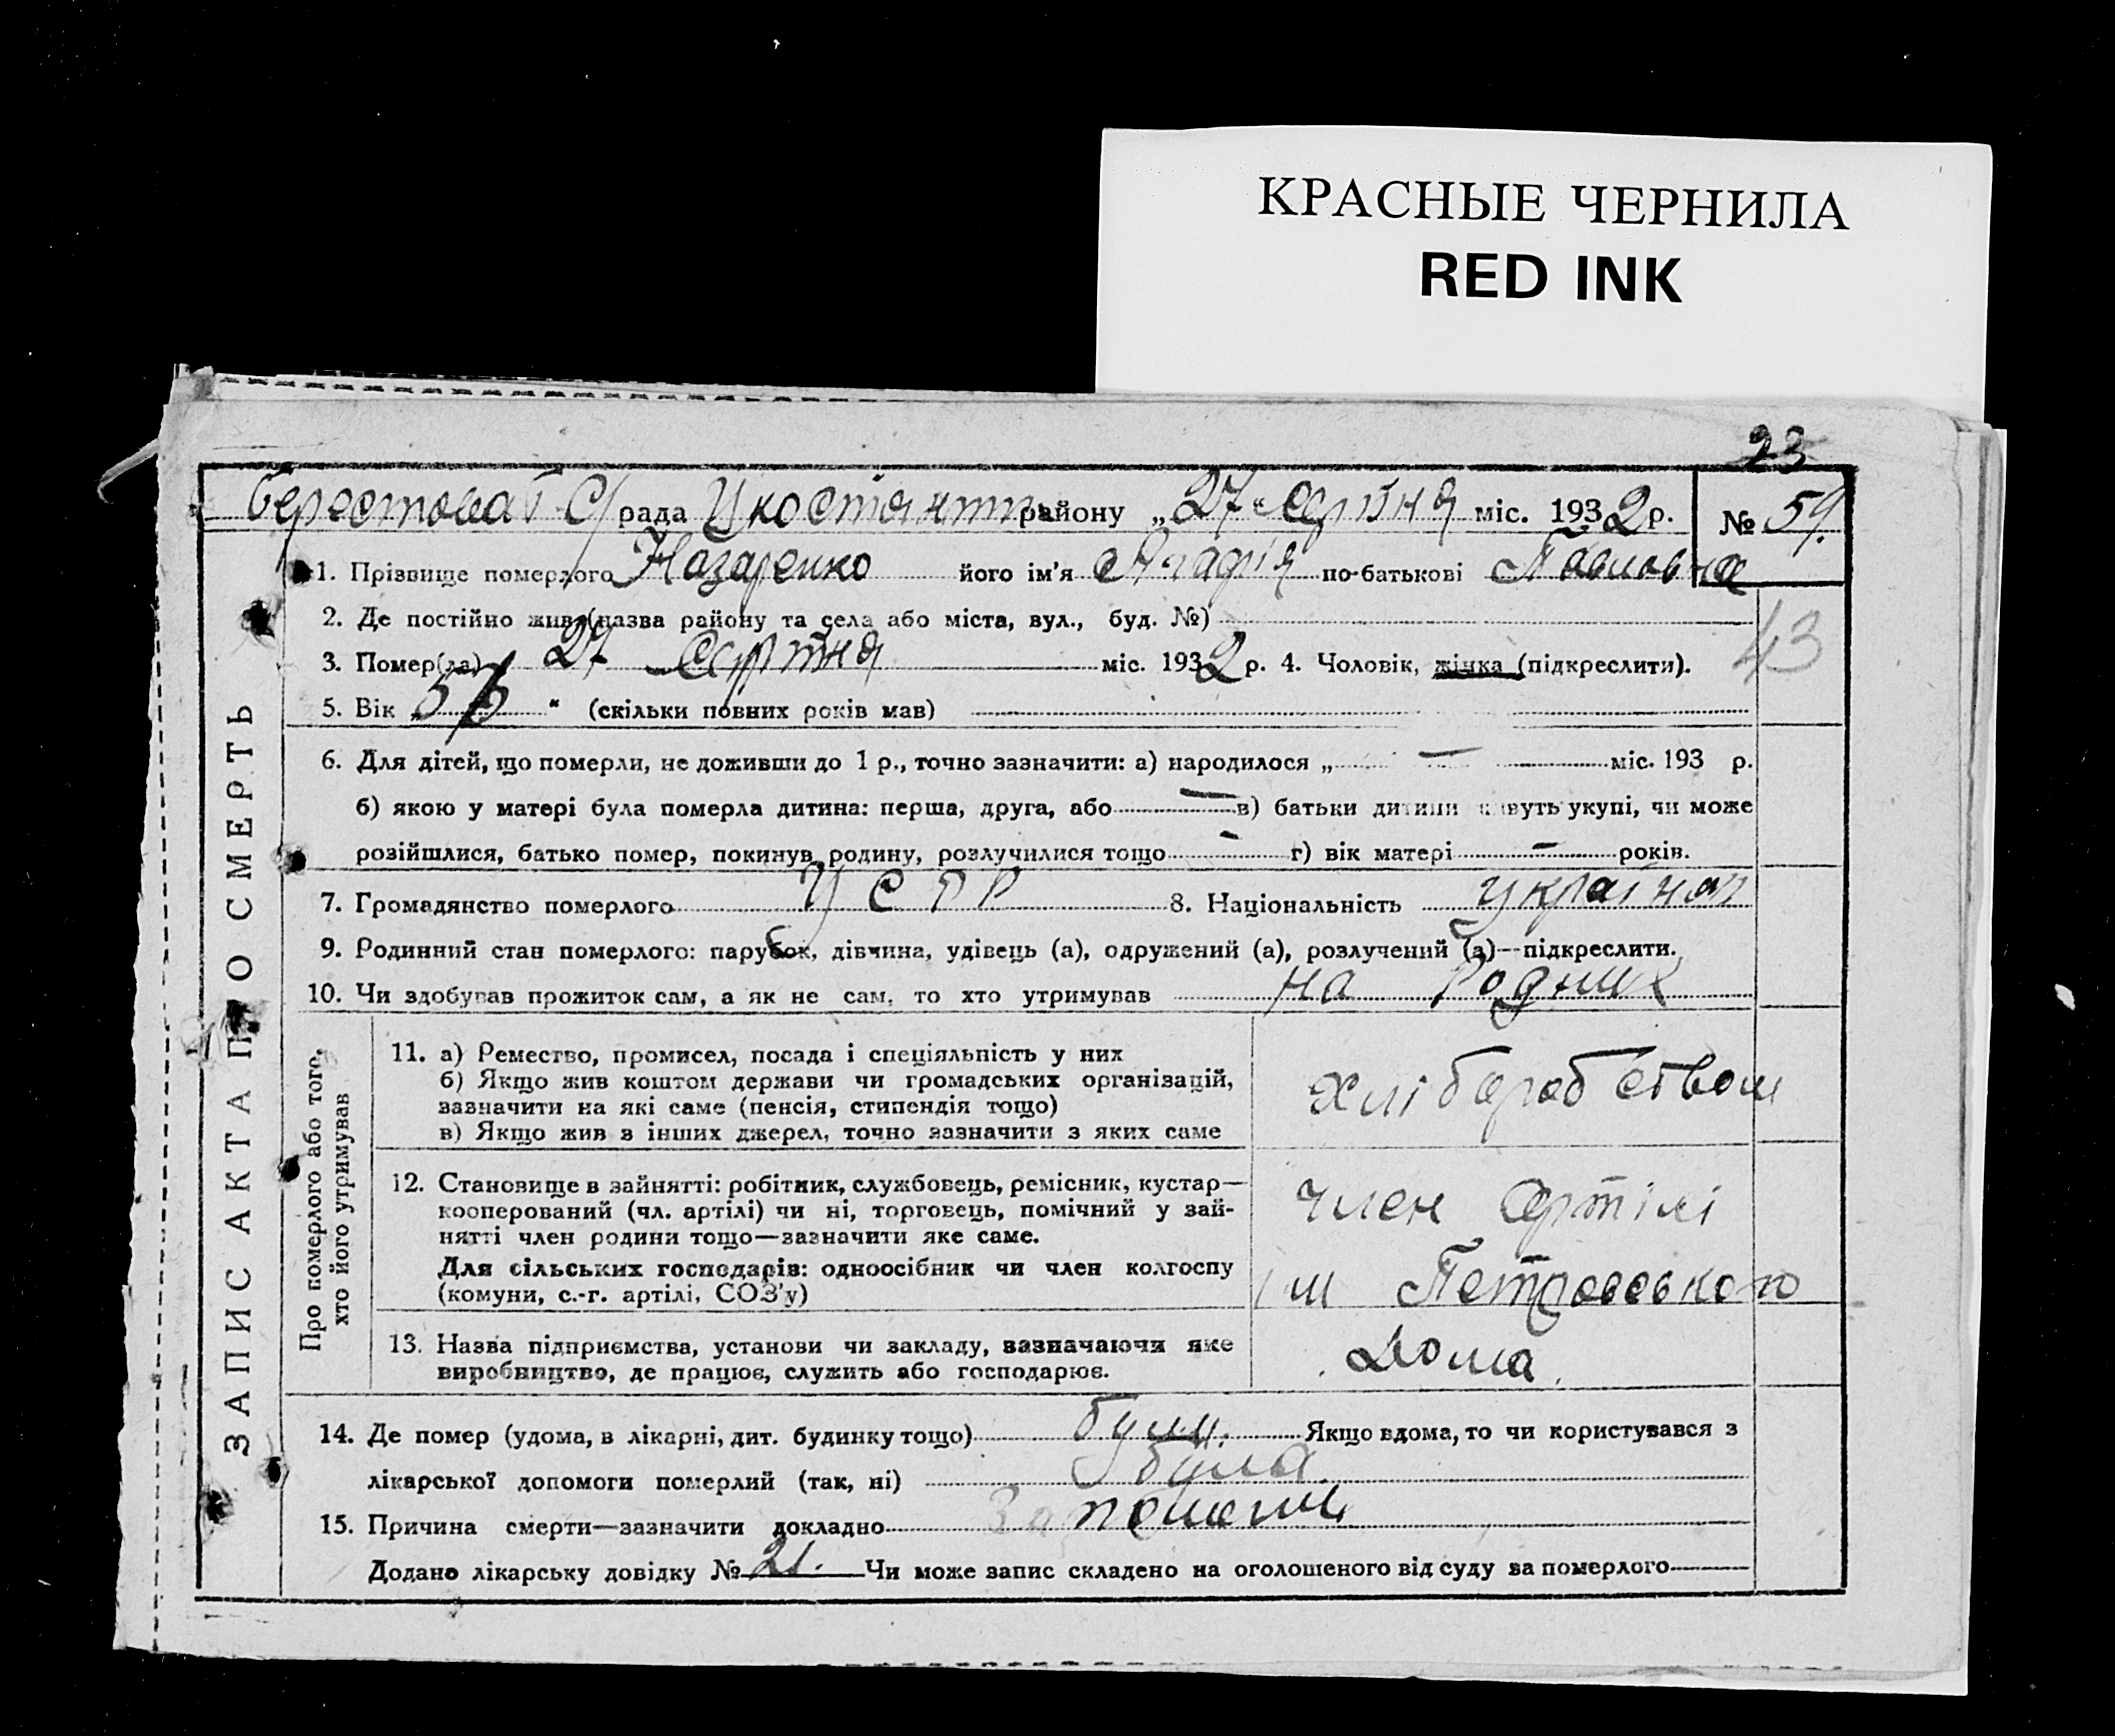 КРАСНЫЕ ЧЕРНИЛА
RED INK
23
рада району „27“ серпня міс. 1932 р. № 59.
1. Прізвище померлого Назаренко його ім'я Агафія по-батькові Павловна
2. Де постійно жив (назва району та села або міста, вул., буд. №)
43
3. Помер(ла) 27 серпня міс. 1932 р. 4. Чоловік, жінка (підкреслити).
5. Вік " (скільки повних років мав)
6. Для дітей, що померли, не доживши до 1 р., точно зазначити: а) народилося „ — міс. 193 р.
б) якою у матері була померла дитина: перша, друга, або — в) батьки дитини живуть укупі, чи може
розійшлися, батько помер, покинув родину, розлучилися тощо — г) вік матері — років.
7. Громадянство померлого УСРР 8. Національність
9. Родинний стан померлого: парубок, дівчина, удівець (а), одружений (а), розлучений (а)—підкреслити.
10. Чи здобував прожиток сам, а як не сам, то хто утримував на
ЗАПИС АКТА ПРО СМЕРТЬ
Про померлого або того,
хто його утримував
11. а) Ремество, промисел, посада і спеціяльність у них
б) Якщо жив коштом держави чи громадських організацій,
зазначити на які саме (пенсія, стипендія тощо)
в) Якщо жив з інших джерел, точно зазначити з яких саме
хліборобством
12. Становище в зайнятті: робітник, службовець, ремісник, кустар—
кооперований (чл. артілі) чи ні, торговець, помічний у зай-
нятті член родини тощо—зазначити яке саме.
Для сільських господарів: одноосібник чи член колгоспу
(комуни, с.-г. артілі, СОЗ'у)
член артілі
ім Петровського
13. Назва підприємства, установи чи закладу, зазначаючи яке
виробництво, де працює, служить або господарює.
Дома.
14. Де помер (удома, в лікарні, дит. будинку тощо) Якщо вдома, то чи користувався з
лікарської допомоги померлий (так, ні) була
15. Причина смерти—зазначити докладно
Додано лікарську довідку № 21. Чи може запис складено на оголошеного від суду за померлого